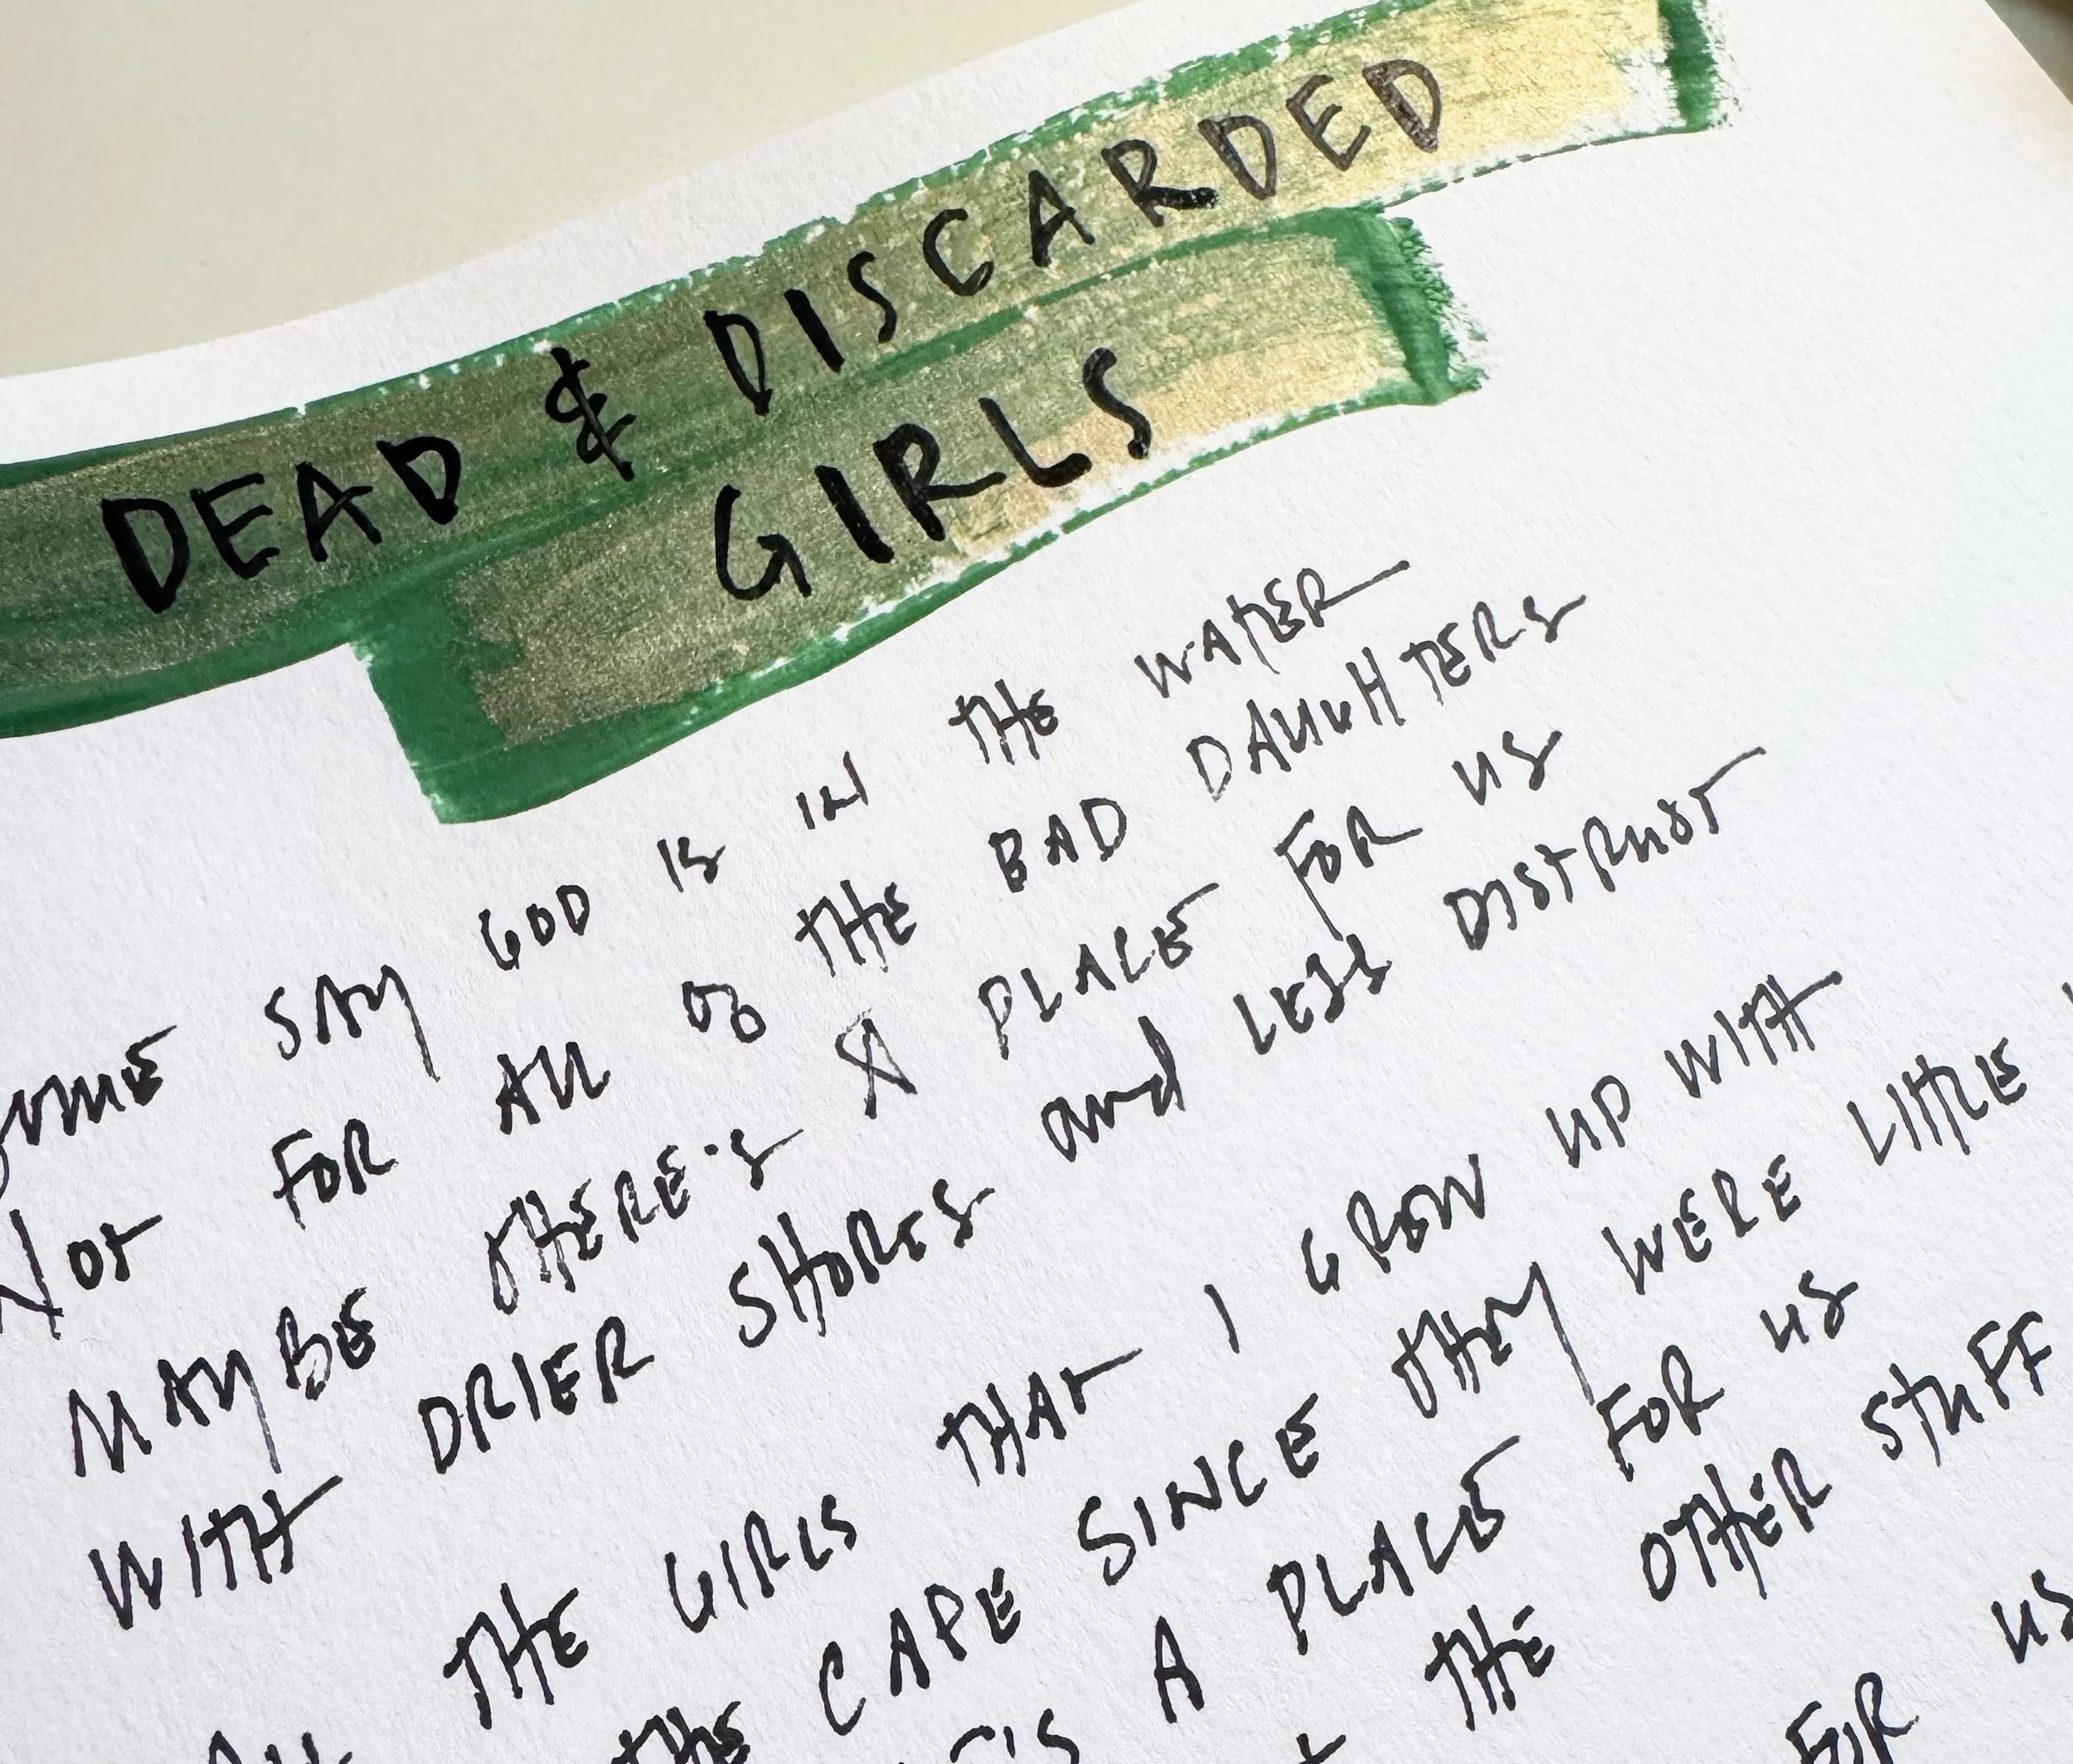 DEAD & DISCARDED
GIRLS
SOME SAY GOD IS IN THE WATER
NOT FOR ALL OF THE BAD DAUGHTERS
MAYBE THERE'S A PLACE FOR US
WITH DRIER SHORES and LESS DISTRUST
THE GIRLS THAT I GROW UP WITH
THE CAPE SINCE THEY WERE LITTLE
A PLACE FOR US
THE OTHER STUFF
FOR US